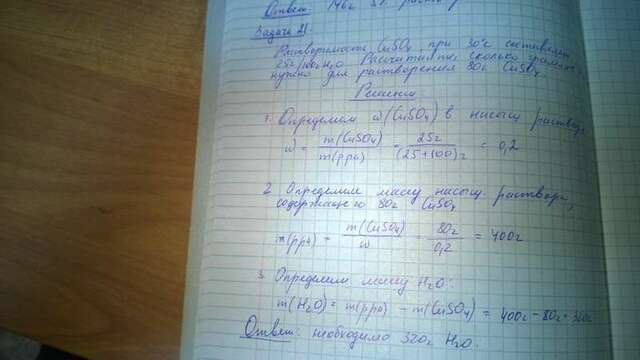 Ответ: 146г 5% раствор
Задача 21.
Растворимость CuSO4 при 30°C составляет
25г/100г H2O. Рассчитайте, сколько грамм
нужно для растворения 80г CuSO4
Решение:
1. Определим ω(CuSO4) в насыщ растворе
ω = m(CuSO4)/m(рра) = 25г/(25+100)г = 0,2
2. Определим массу насыщ раствора,
содержащего 80г CuSO4
m(рра) = m(CuSO4)/ω = 80г/0,2 = 400г
3. Определим массу H2O:
m(H2O) = m(рра) - m(CuSO4) = 400г - 80г = 320г
Ответ: необходимо 320г H2O.